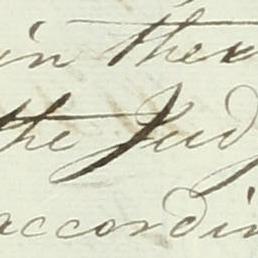 in the
the Jud
accordin